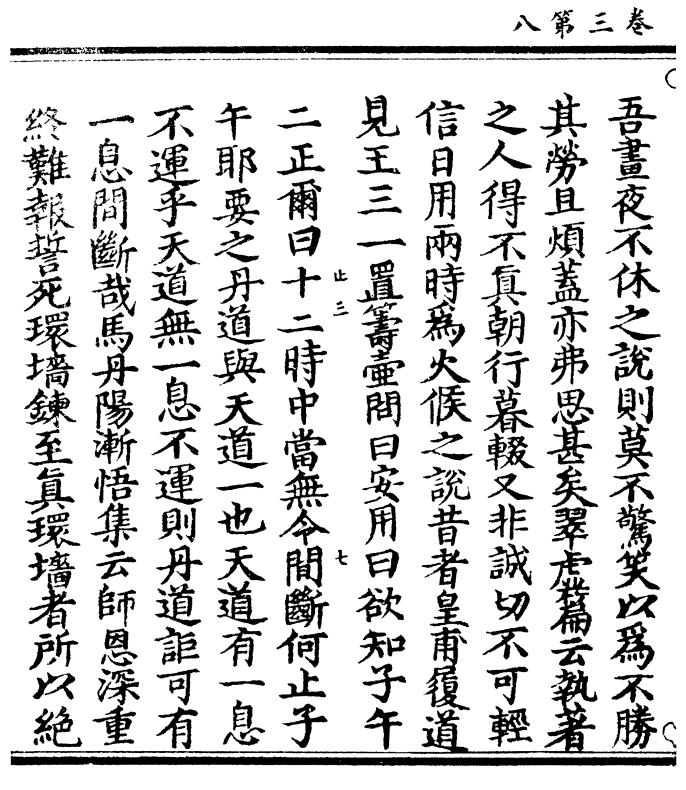 卷三第八
吾晝夜不休之說則莫不驚笑以爲不勝
其勞且煩蓋亦弗思甚矣翠虛篇云執著
之人得不眞朝行暮輟又非誠切不可輕
信日用兩時爲火候之說昔者皇甫履道
見王三一置籌壺間曰安用曰欲知子午
止三
七
二正爾曰十二時中當無令間斷何止子
午耶要之丹道與天道一也天道有一息
不運乎天道無一息不運則丹道詎可有
一息間斷哉馬丹陽漸悟集云師恩深重
終難報誓死環墻鍊至眞環墻者所以絕